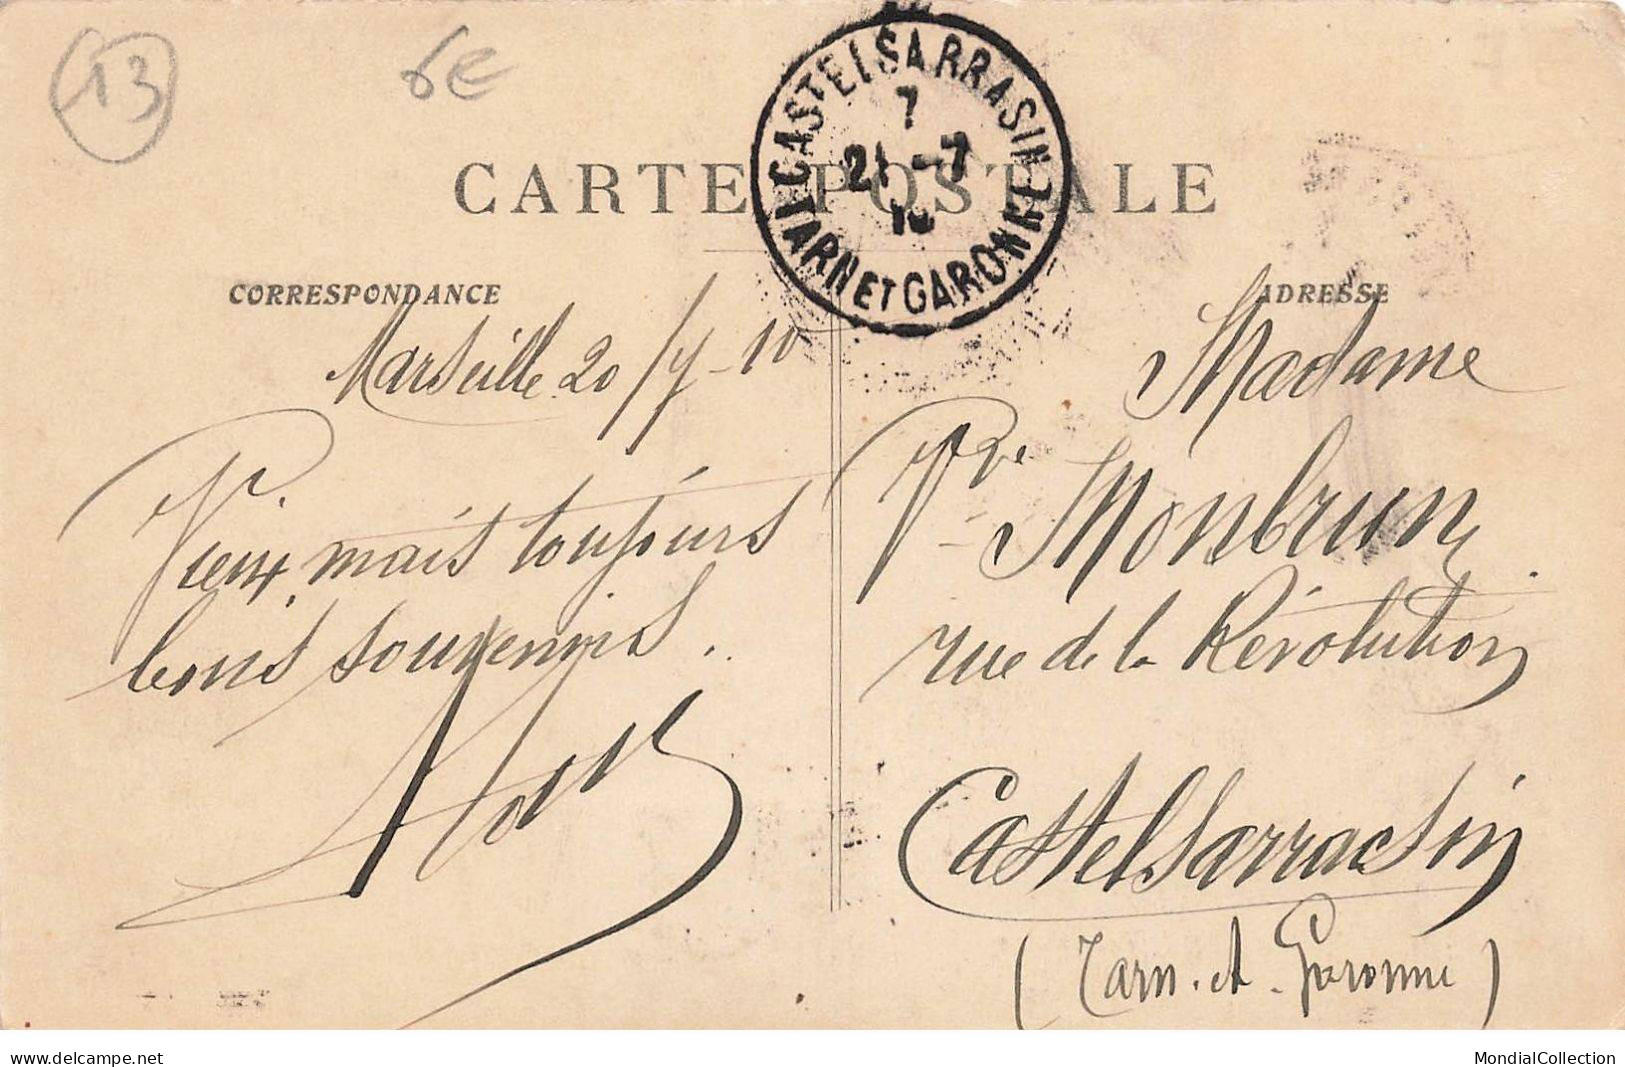 13
6€
CASTELSARRASIN
7
21 -7
10
TARN ET GARONNE
CARTE POSTALE
CORRESPONDANCE
ADRESSE
Marseille 20/7-10
Vieux mais toujours
bons souvenirs.
Madame
Vve Monbrun
rue de la Révolution
Castelsarrasin
(Tarn-et-Garonne)
delcampe.net
MondialCollection